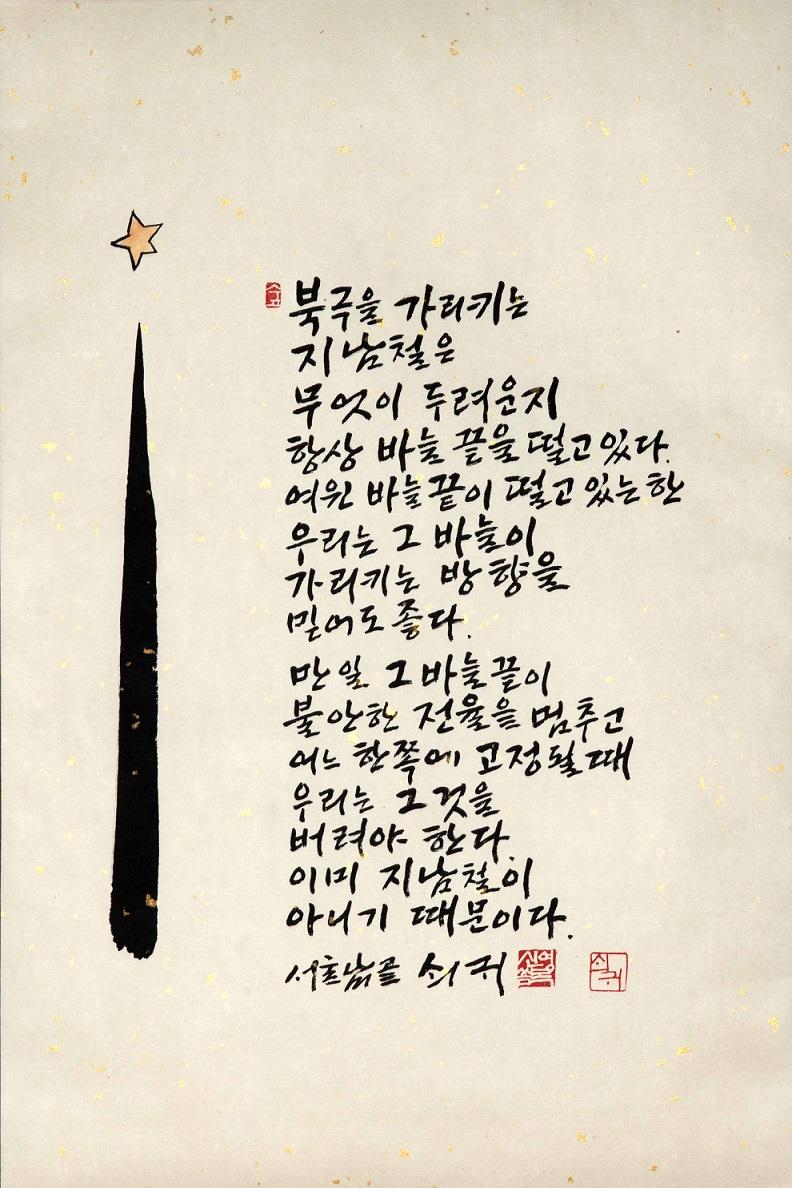 북극을 가리키는
지남철은
무엇이 두려운지
항상 바늘 끝을 떨고 있다.
여윈 바늘 끝이 떨고 있는 한
우리는 그 바늘이
가리키는 방향을
믿어도 좋다.
만일 그 바늘 끝이
불안한 전율을 멈추고
어느 한쪽에 고정될 때
우리는 그것을
버려야 한다.
이미 지남철이
아니기 때문이다.
쇠귀
쇠귀